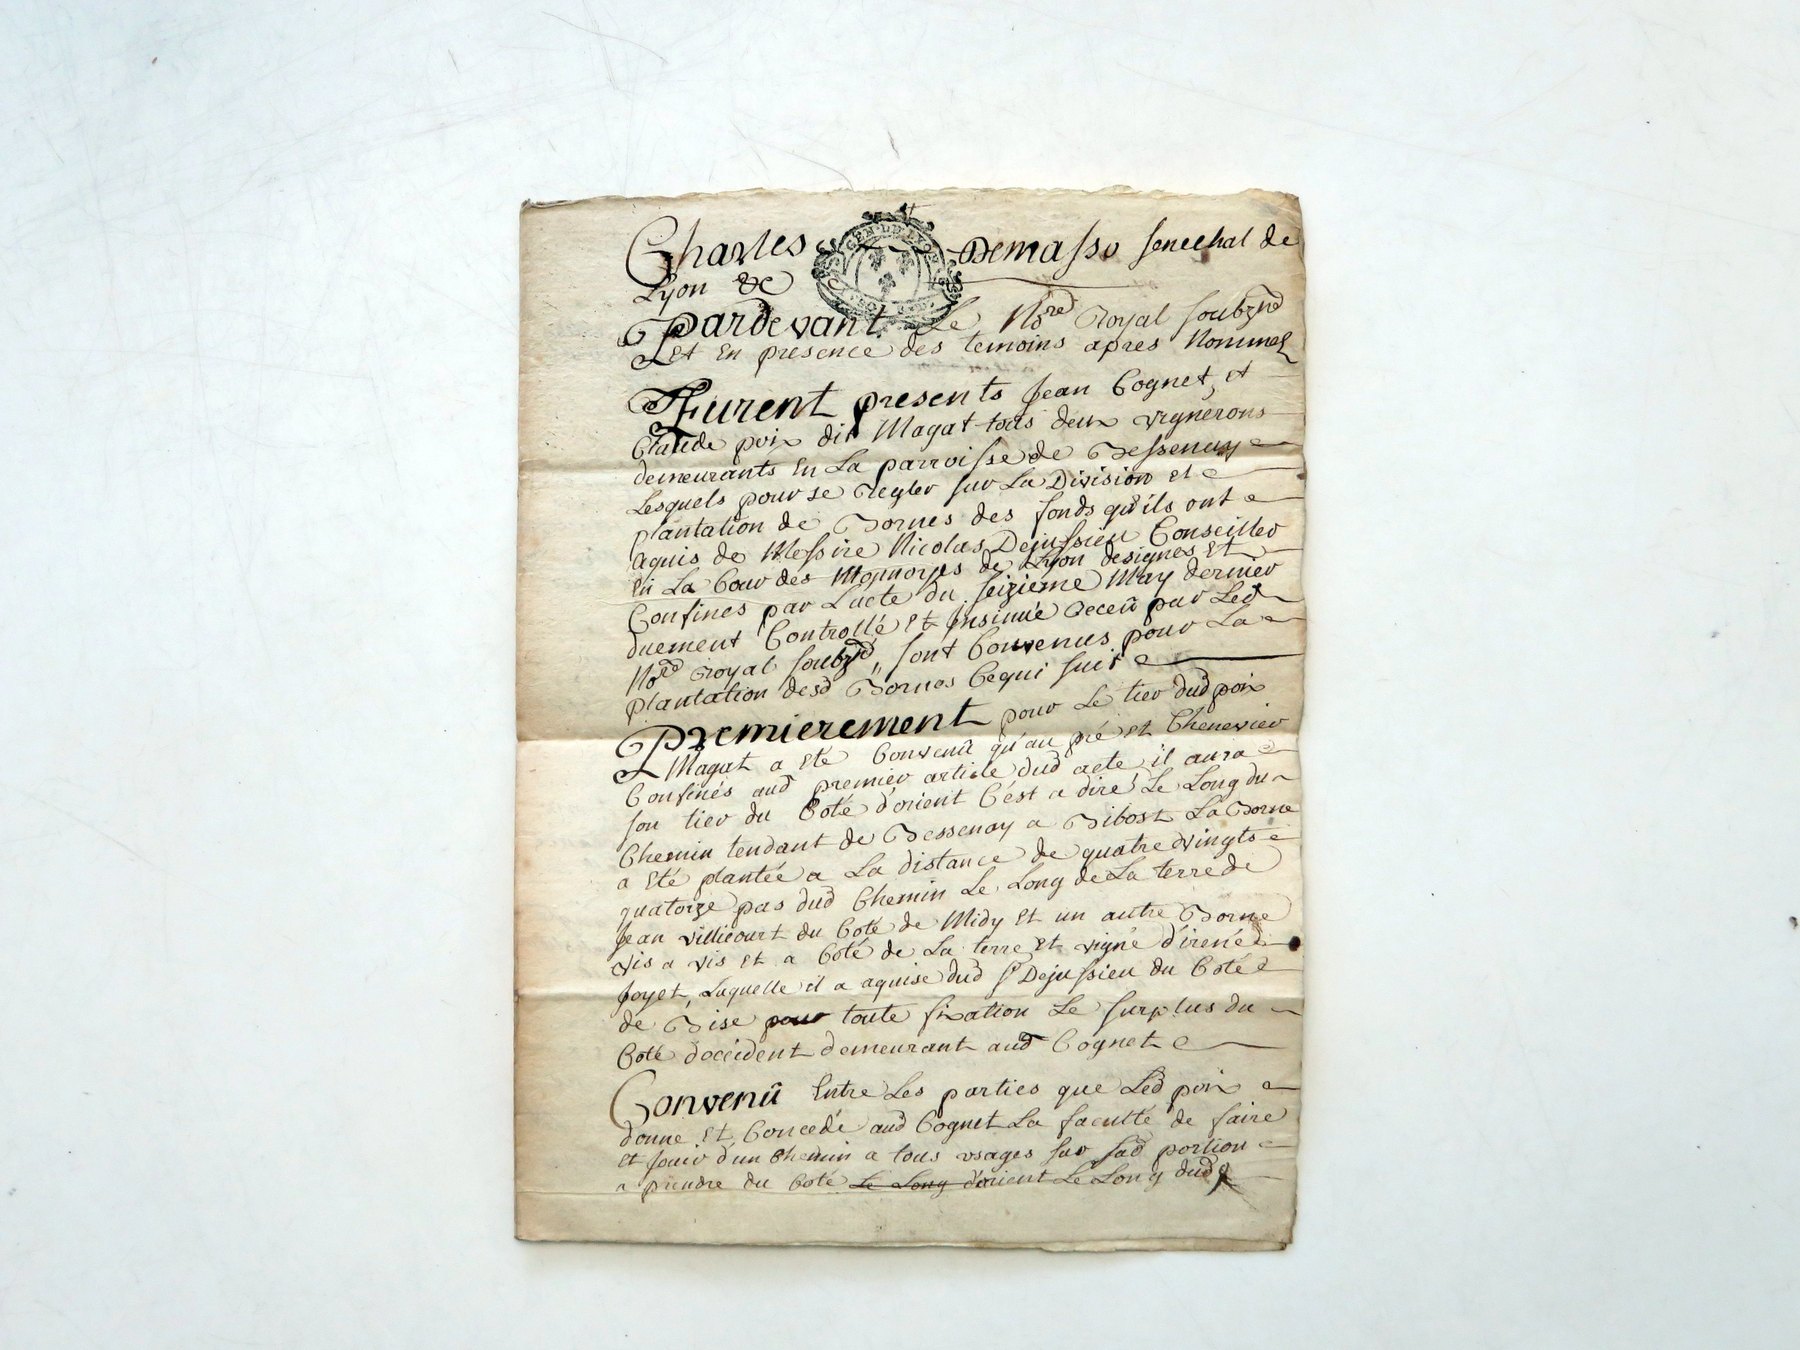 Charles Demasso senechal de
Lyon &c
GEN. DE LYON
Pardevant Le No.re Royal soubzné
Et En presence des temoins apres Nommez
Furent presents Jean Cognet, et
Claude poix dit Magat tous deux vignerons
demeurants En La parroisse de Bessenay
Lesquels pour se Regler sur La Division et
plantation de Bornes des fonds qu'ils ont
aquis de Messire Nicolas Dejussieu Conseiller
En La Cour des Monnoyes de Lyon designés Et
Confinés par L'acte du seizieme May dernier
duement Controllé Et Insinué Receu par Led
No.re Royal soubzné, sont Convenus pour La
plantation desd Bornes Cequi suit
Premierement pour Le tier dud poix
Magat a eté Convenû qu'au pré et Chenevier
Confinés aud premier article dud acte il aura
son tier du Coté d'orient C'est a dire Le Long du
Chemin tendant de Bessenay a Bibost La Borne
a Eté plantée a La distance de quatre vingts
quatorze pas dud Chemin Le Long de La terre de
Jean Villicourt du Coté de Midy Et un autre Borne
vis a vis Et a Coté de La terre Et vigne d'irenée
Joyet, Laquelle il a aquise dud Sr Dejussieu du Coté
de Bise pour toute fixation Le surplus du
Coté d'occident demeurant aud Cognet
Convenû Entre Les parties que Led poix
donne Et Concede aud Cognet La faculté de faire
et jouir d'un Chemin a tous usages sur sad portion
a prendre du Coté Le Long d'orient Le Long dud